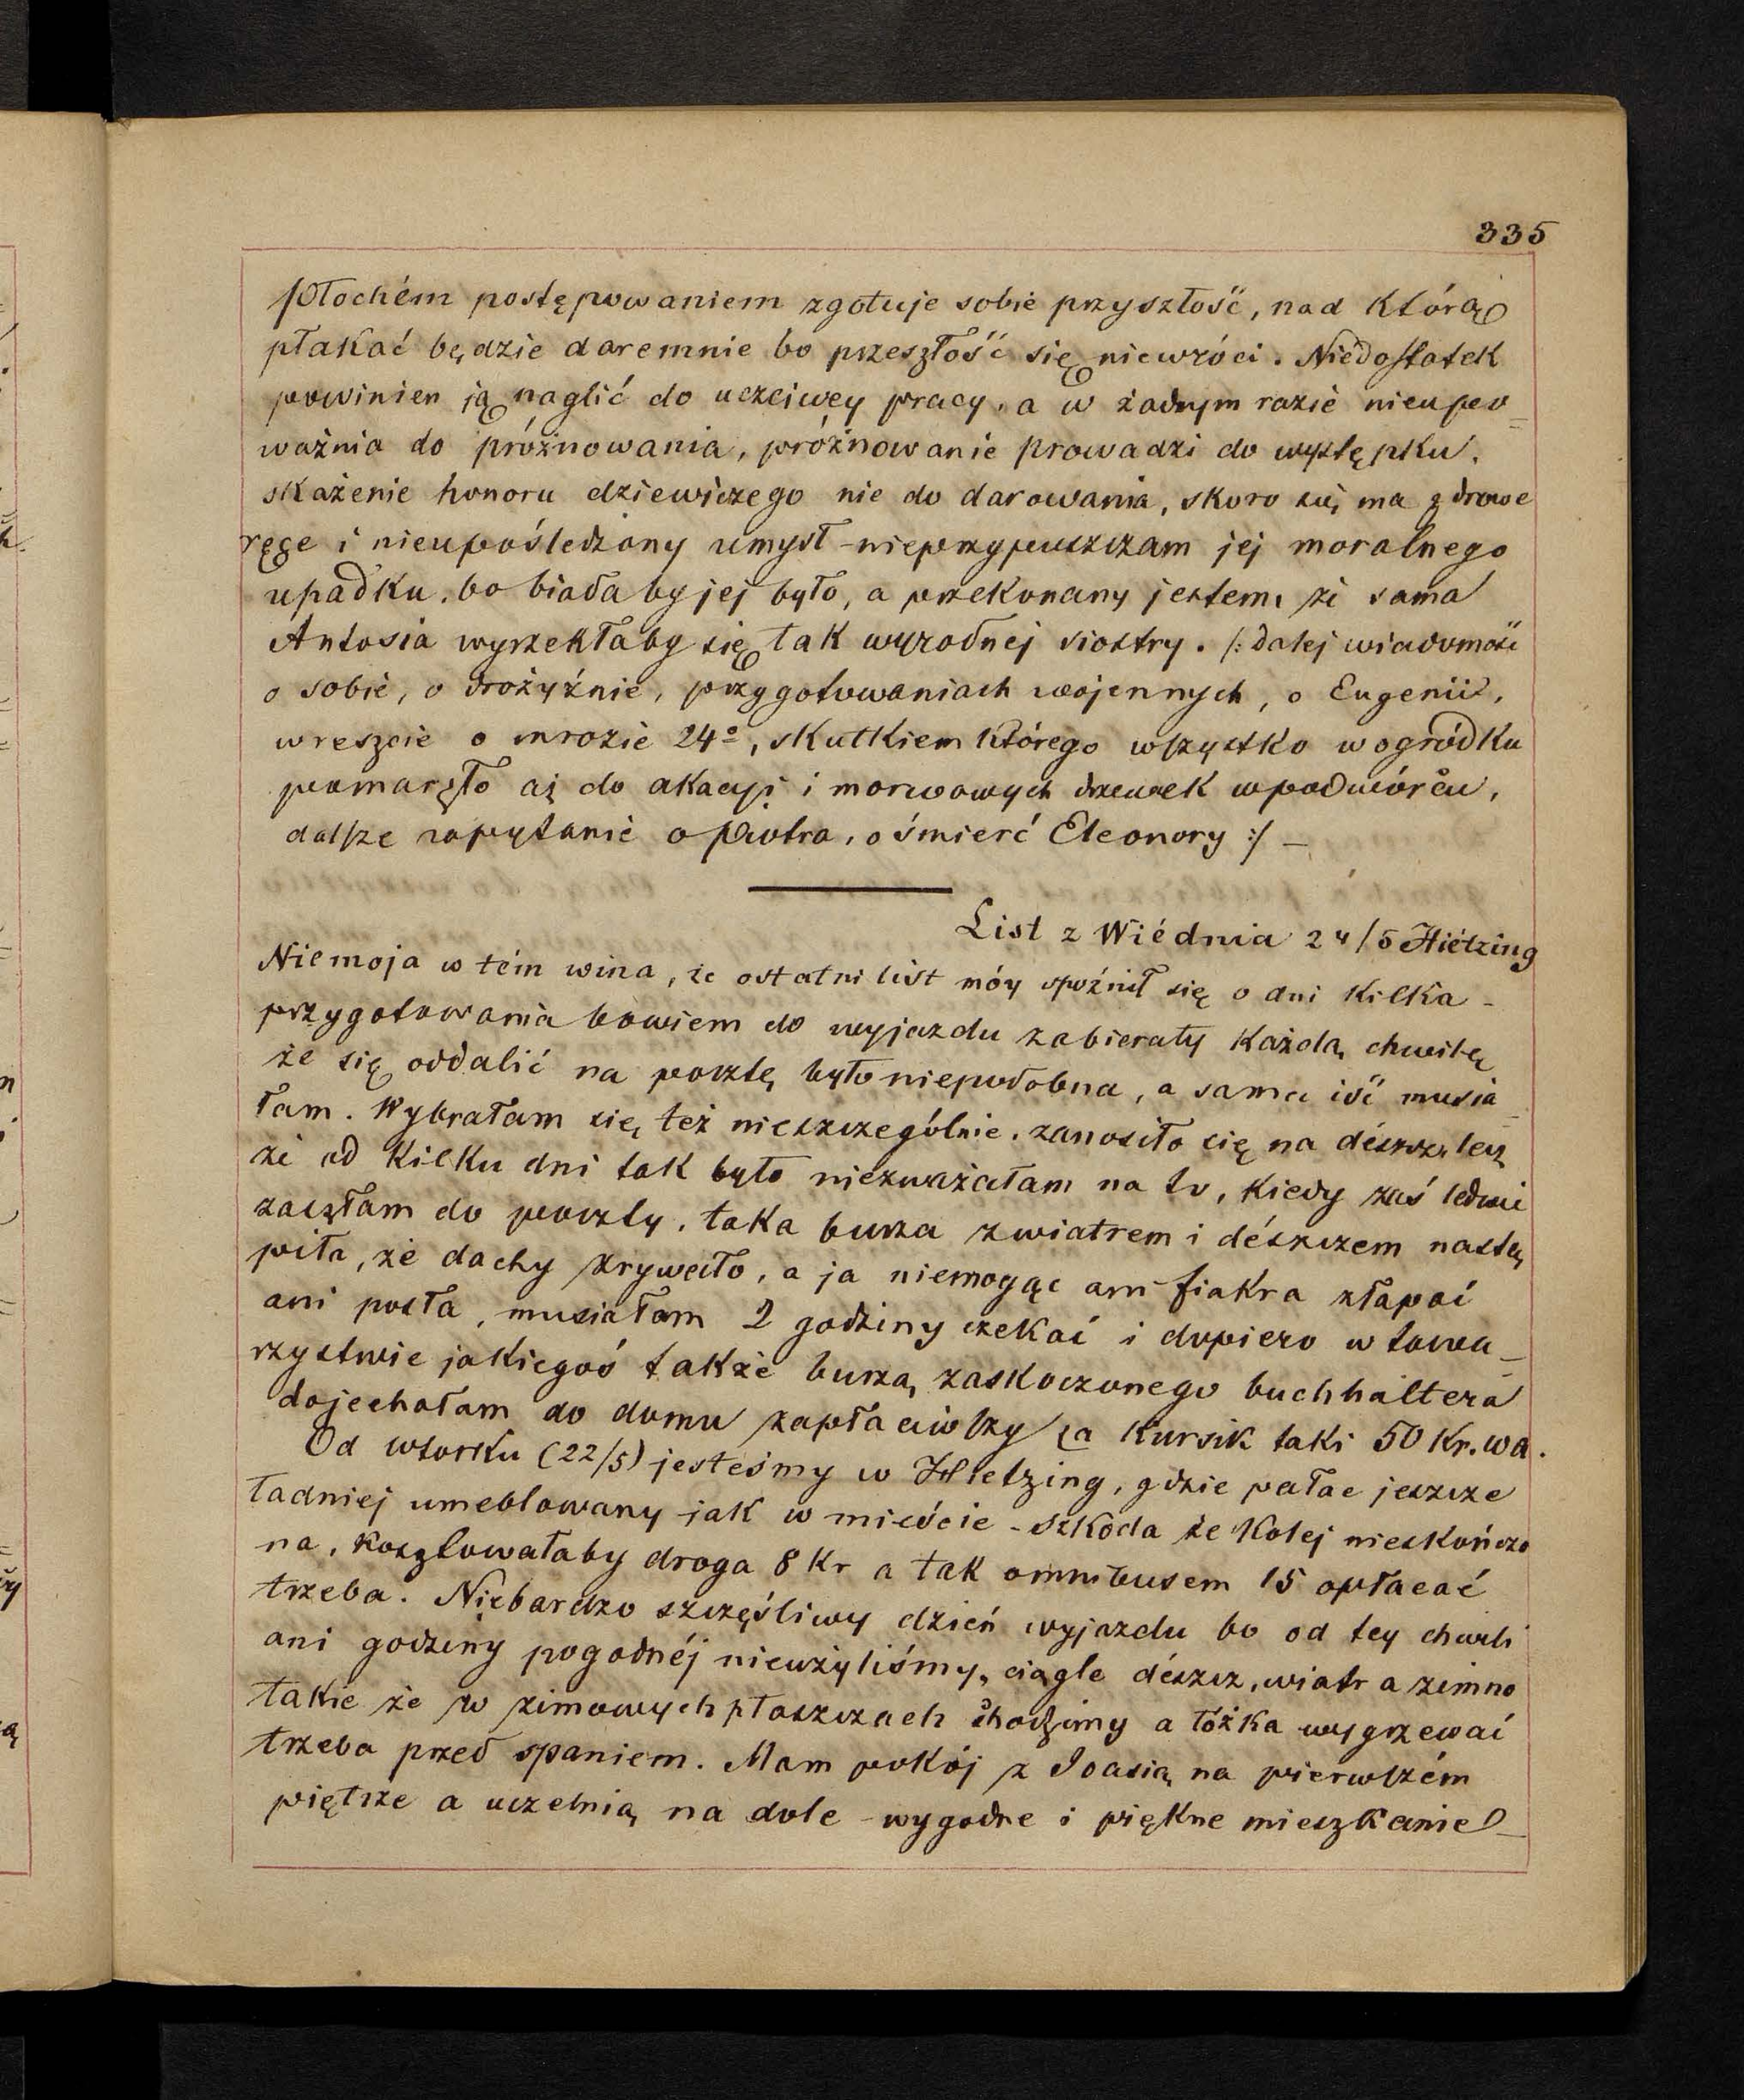 335
płochém postępowaniem zgotuje sobie przyszłość, nad którą
płakać będzie daremnie bo przeszłość się niewróci. Niedostatek
powinien ją naglić do uczciwey pracy, a w żadnym razie nieupo-
ważnia do próżnowania, próżnowanie prowadzi do występku,
skażenie honoru dziewiczego nie do darowania, skoro się ma zdrowe
ręce i nieupośledzony umysł - nieprzypuszczam jej moralnego
upadku, bo biada by jej było, a przekonany jestem, że sama
Antosia wyrzekłaby się tak wyrodnej siostry. /: dalej wiadomość
o sobie, o drożyźnie, przygotowaniach wojennych, o Eugenii,
wreszcie o mrozie 24°, skutkiem którego wszystko w ogródku
pomarzło aż do akacyi i morwowych drzewek w podwórcu,
dalsze zapytanie o Piotra, o śmierć Eleonory :/ —
List z Wiédnia 24/5 Hietzing
Nie moja w tém wina, że ostatni list móy spóźnił się o dni kilka -
przygotowania bowiem do wyjazdu zabierały każdą chwilę
że się oddalić na pocztę było niepodobna, a sama iść musia-
łam. Wybrałam się też nieszczególnie, zanosiło się na dészcz, lecz
że od kilku dni tak było niezważałam na to, kiedy zaś ledwie
zaszłam do poczty, taka burza z wiatrem i dészczem nastą
piła, że dachy zrywało, a ja niemogąc ani fiakra złapać
ani posła, musiałam 2 godziny czekać i dopiero w towa-
rzystwie jakiegoś także burzą zaskoczonego buchhaltera
dojechałam do domu zapłaciwszy za kursik taki 50 Kr. wa.
Od wtorku (22/5) jesteśmy w Hietzing, gdzie pałac jeszcze
ładniej umeblowany jak w mieście - szkoda że kolej nieskończo
na, kosztowałaby droga 8 Kr a tak omnibusem 15 opłacać
trzeba. Niebardzo szczęśliwy dzień wyjazdu bo od tey chwili
ani godziny pogodnéj nieużyliśmy, ciągle dészcz, wiatr a zimno
takie że w zimowych płaszczach chodzimy a łóżka wygrzewać
trzeba przed spaniem. Mam pokój z Joasią na pierwszém
piętrze a uczelnią na dole - wygodne i piękne mieszkanie -